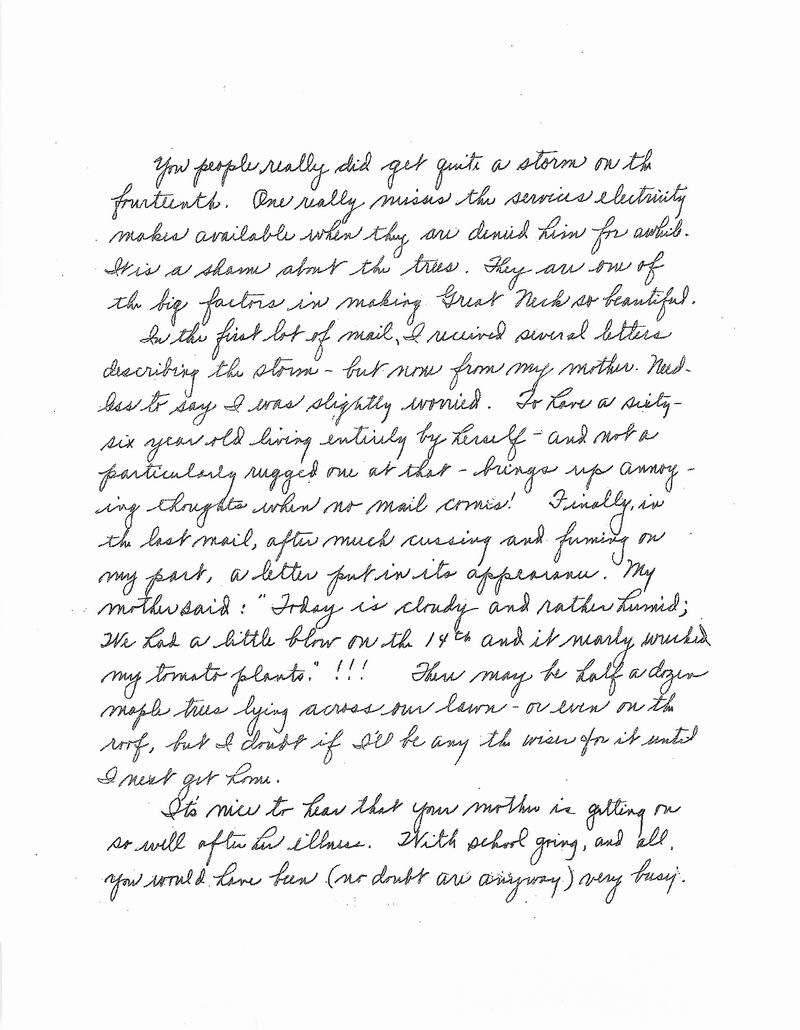 You people really did get quite a storm on the
fourteenth. One really misses the services electricity
makes available when they are denied him for awhile.
It is a shame about the trees. They are one of
the big factors in making Great Neck so beautiful.
In the first lot of mail, I received several letters
describing the storm - but none from my mother. Need-
less to say I was slightly worried. To have a sixty-
six year old living entirely by herself - and not a
particularly rugged one at that - brings up annoy-
ing thoughts when no mail comes! Finally, in
the last mail, after much cussing and fuming on
my part, a letter put in its appearance. My
mother said: "Today is cloudy and rather humid;
We had a little blow on the 14th and it nearly wrecked
my tomato plants." !!! There may be half a dozen
maple trees lying across our lawn - or even on the
roof, but I doubt if I'll be any the wiser for it until
I next get home.
It's nice to hear that your mother is getting on
so well after her illness. With school going, and all,
you would have been (no doubt are anyway) very busy.